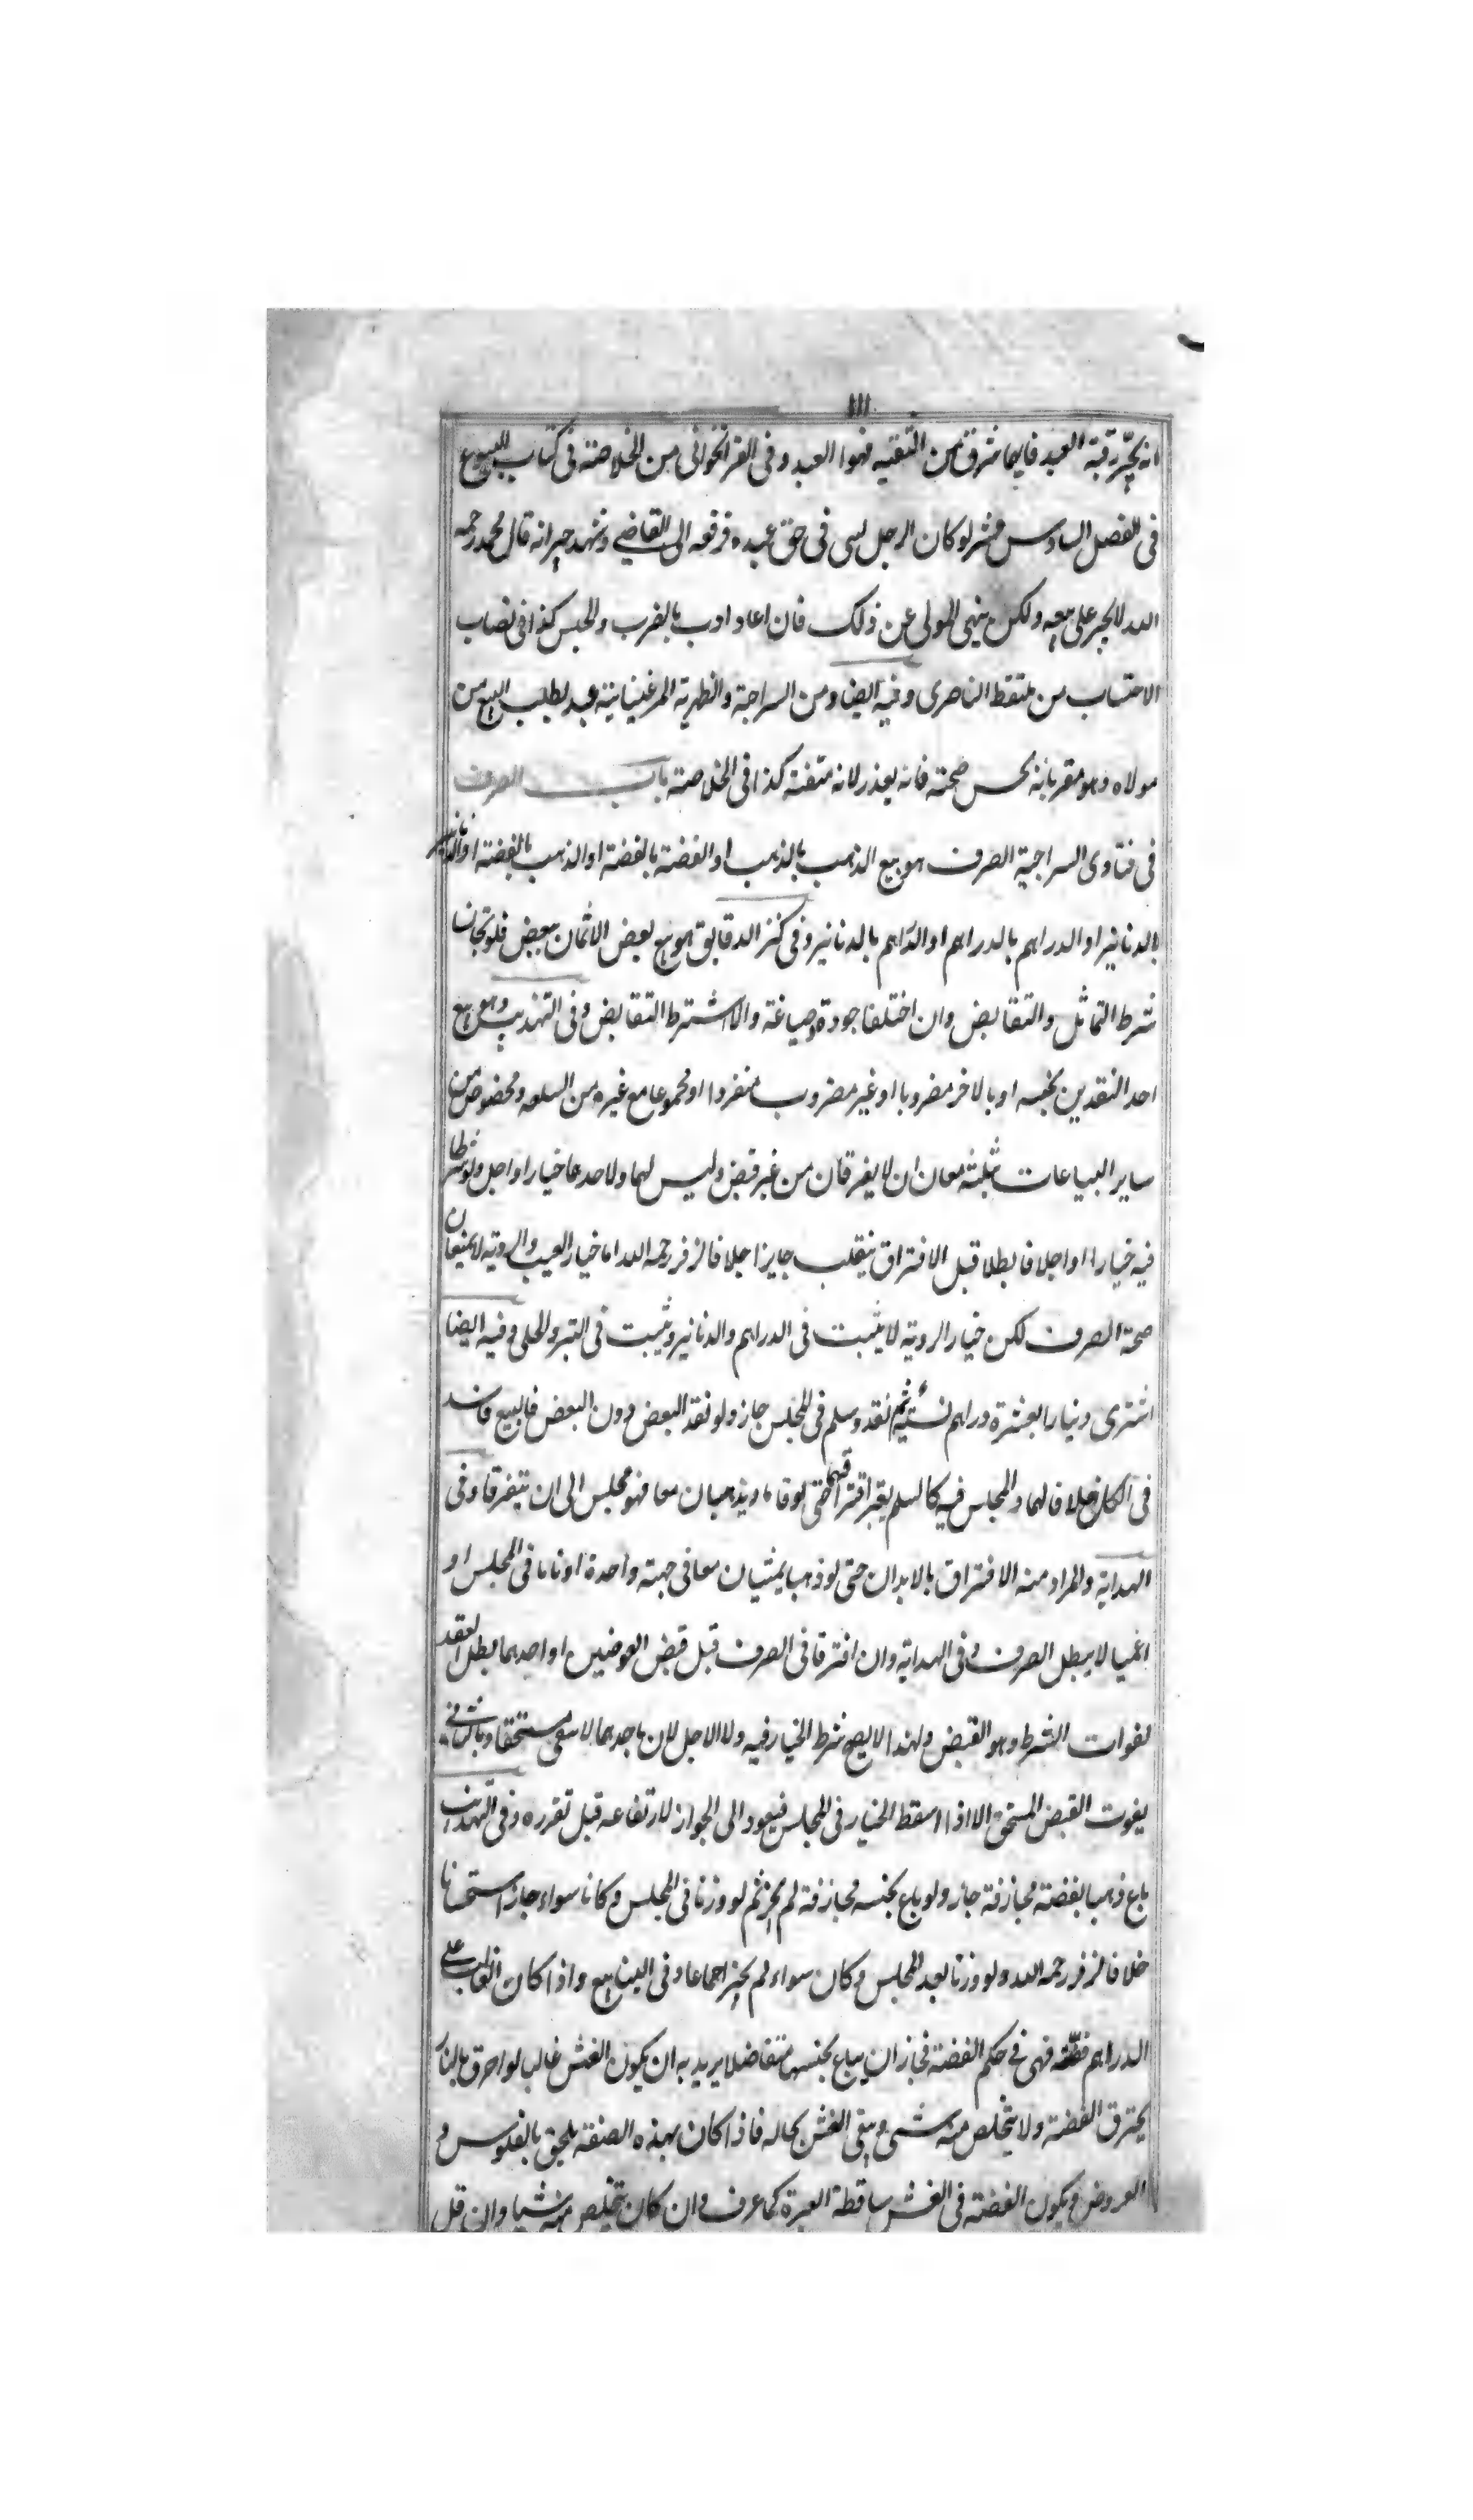 ١١١
انه يخير رقبة العبد فايهما شرق من التقنيه فهوا العبد وفى القراخوانى من الخلاصته فى كتاب البيوع
فى الفصل السادس عشر لو كان الرجل لسى فى حق عبده فرفعه الى القاضي وشهد جيرانه قال محمد رحمه
الله لايجبر على بيعه ولكن ينهى المولى عن ذلك فان اعاد ادب بالضرب والحبس كذا فى نصاب
الاحتساب من ملتقط الناصرى وفيه ايضا ومن السراجة والظهرية المرغينانية عبد يطلب البيع من
مولاه وهو مقر بانه يحسن صحبته فانه يعذر لانه متفنة كذا فى الخلاصته باب الصرف
فى فتاوى السراجية الصرف هو بيع الذهب بالذهب او الفضة بالفضة او الذهب بالفضته او الدنانير
بالدنانير او الدراهم بالدراهم او الدراهم بالدنانير وفى كنز الدقايق هو بيع بعض الاثمان ببعض فلو تجانسا
شرط التماثل والتقابض وان اختلفا جودة وصياغة والا اشترط التقابض وفى التهذيب وهو بيع
احد النقدين بجنسه او بالاخر مضروبا او غير مضروب منفردا او مجموعا مع غيره من السلعه ومخصوص من
ساير البياعات بثلثه معان ان لا يفرقان من غير قبض وليس لهما ولاحدهما خيار او اجل ولو شرطا
فيه خيارا او اجلا فابطلا قبل الافتراق ينقلب جايزا خلافا لزفر رحمه الله اما خيار العيب والروية لا يمنعان
صحة الصرف لكن خيار الروية لا يثبت فى الدراهم والدنانير ويثبت فى التبر والحلى وفيه ايضا
اشترى دنيارا بعشرة دراهم نسئية ثم نقد وسلم فى المجلس جاز ولو نقد البعض دون البعض فالبيع فاسد
فى الكل خلافا لهما والمجلس فيه كالسلم يعتبر افتراقهما حتى لو قاما ويذهبان معا فهو مجلس الى ان يتفرقا وفى
الهداية والمراد منه الافتراق بالابدان حتى لو ذهب يمشيان معا فى جهته واحدة او ناما فى المجلس او
اغميا لا يبطل الصرف وفى الهداية وان افترقا فى الصرف قبل قبض العوضين او احدهما بطل العقد
لفوات الشرط وهو القبض ولهذا لايصح شرط الخيار فيه ولا الاجل لان باحدهما لا يبقى مستحقا وبالثانى
يفوت القبض المستحق الا اذا اسقط الخيار فى المجلس فيعود الى الجواز لارتفاعه قبل تقرره وفى التهذيب
باع ذهبا بفضته مجازفة جاز ولو باع بجنسه مجازفة لم يجز ثم لو وزنا فى المجلس وكانا سواء جاز استحسانا
خلافا لزفر رحمه الله ولو وزنا بعد المجلس وكان سواء لم يجز اجماعا وفى الينابيع واذا كان الغالب على
الدراهم فضّة فهى فى حكم الفضته فجاز ان يباع بجنسها متفاضلا يريد به ان يكون الغش غالب لو احرق بالنار
يحترق الفضته ولا يتخلص منه شى ويبقى الغش بحاله فاذا كان بهذه الصفة يلحق بالفلوس و
العروض ويكون الفضته فى الغش ساقطة العبرة كما عرف وان كان يتخلص منه شيا وان قل